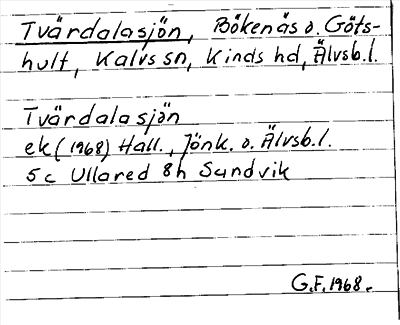 Tvärdalasjön, Bökenäs o. Göts-
hult, Kalvs sn, Kinds hd, Älvsb.l.
Tvärdalasjön
ek (1968) Hall., Jönk. o. Älvsb.l.
5c Ullared 8h Sandvik
G.F. 1968.